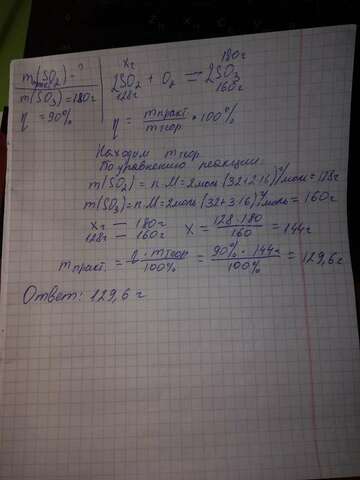 m практ(SO₂) = ?
m(SO₃) = 180 г
η = 90%
xг 180 г
2SO₂ + O₂ = 2SO₃
128г 160г
η = m практ / m теор · 100%
Находим m теор.
По уравнению реакции
m(SO₂) = n·M = 2моль·(32+2·16) г/моль = 128г
m(SO₃) = n·M = 2моль·(32+3·16) г/моль = 160г
xг — 180г
128г — 160г
X = 128·180 / 160 = 144г
m практ. = η · m теор / 100% = 90% · 144г / 100% = 129,6г
Ответ: 129,6 г